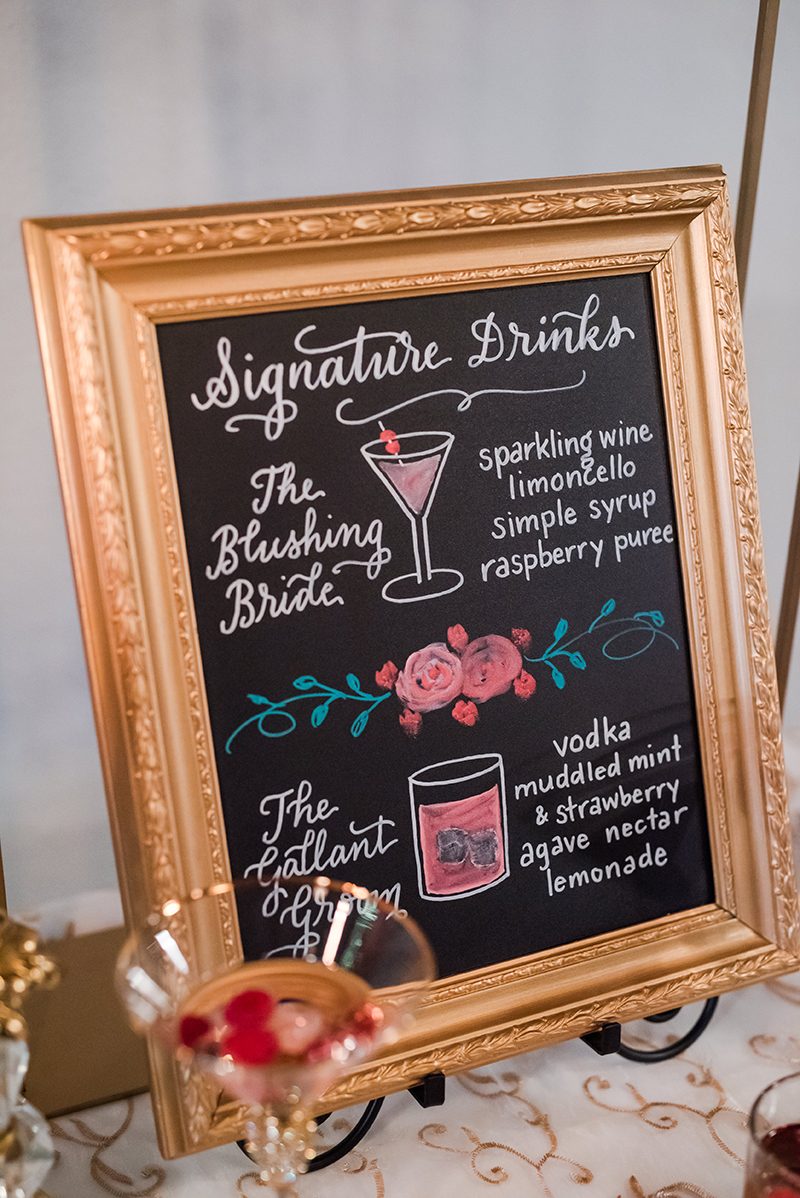 Signature Drinks
The
Blushing
Bride
sparkling wine
limoncello
simple syrup
raspberry puree
The
Gallant
Groom
vodka
muddled mint
& strawberry
agave nectar
lemonade